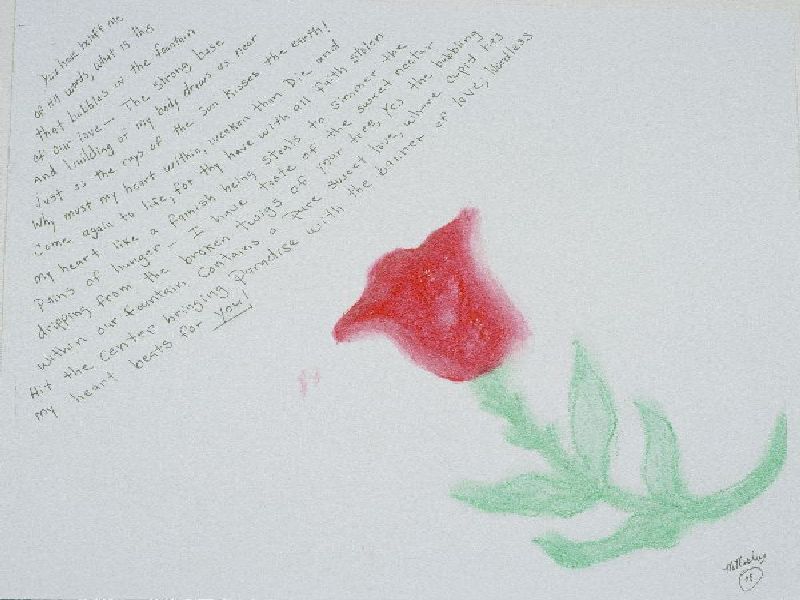 You have bereft me
of all words, what is this
that bubbles in the fountain
of our love— The strong base
and building of my body draws as near
Just as the rays of the sun kisses the earth!
Why must my heart within, weaken than Die and
Come again to life, for thy have with all faith stolen
my heart like a famish being steals to simmer the
Pains of hunger— I have taste of the sweet nectar
dripping from the broken twigs of your tree, Yes the bubbling
within our fountain contains a pure sweet love, where cupid has
Hit the center bringing Paradise with the banner on love, Needless
my heart beats for you!